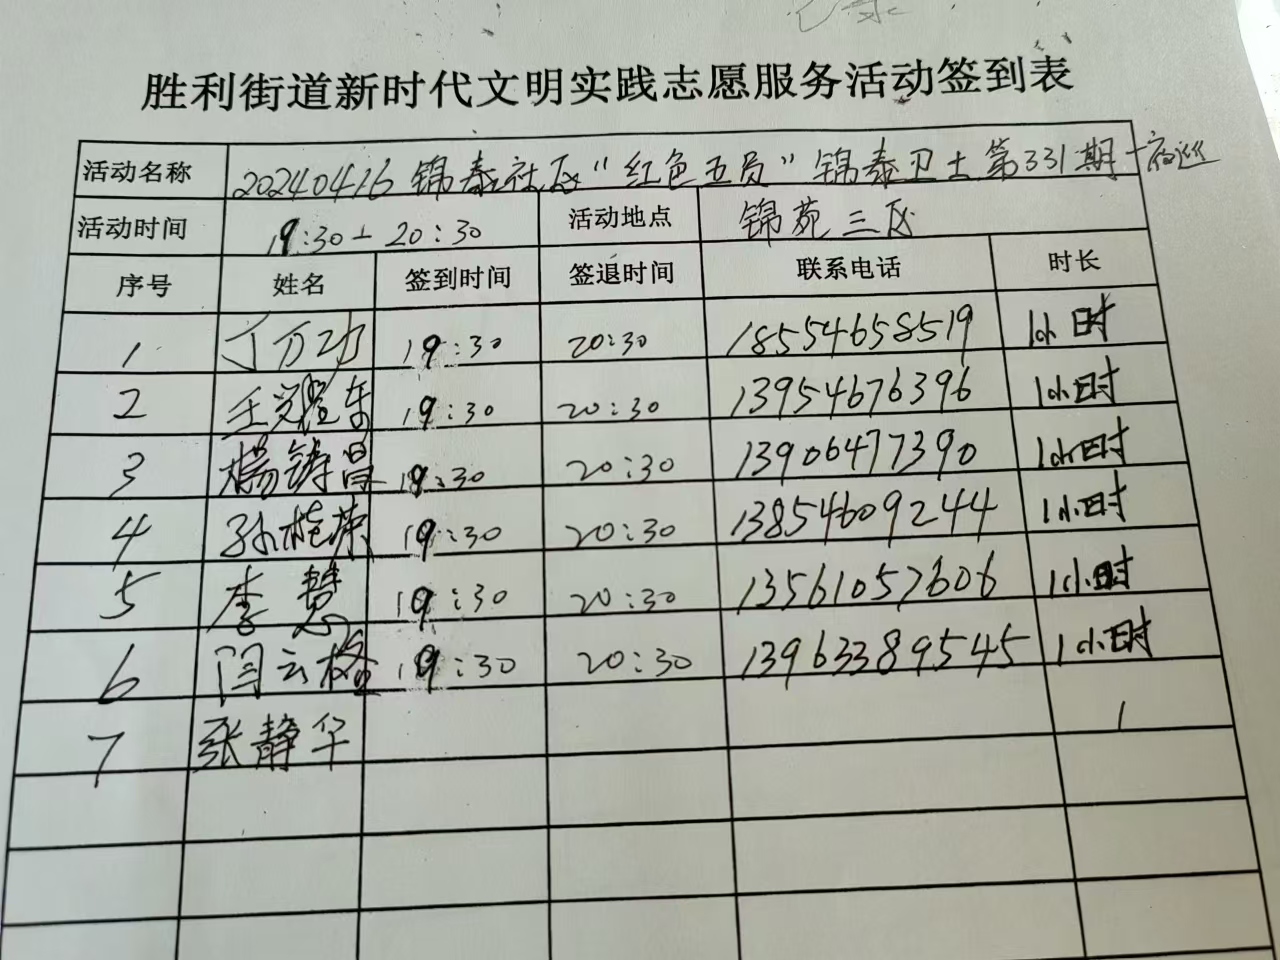 胜利街道新时代文明实践志愿服务活动签到表
活动名称 20240416 锦泰社区“红色五员”锦泰卫士第331期-夜巡
活动时间 19:30-20:30 活动地点 锦苑三区
序号 姓名 签到时间 签退时间 联系电话 时长
1 丁万功 19:30 20:30 18554658519 1小时
2 王耀东 19:30 20:30 13954676396 1小时
3 杨铸昌 19:30 20:30 13906477390 1小时
4 孙桂荣 19:30 20:30 13854609244 1小时
5 李慧 19:30 20:30 13561057606 1小时
6 闫云格 19:30 20:30 13963389545 1小时
7 张静华 1